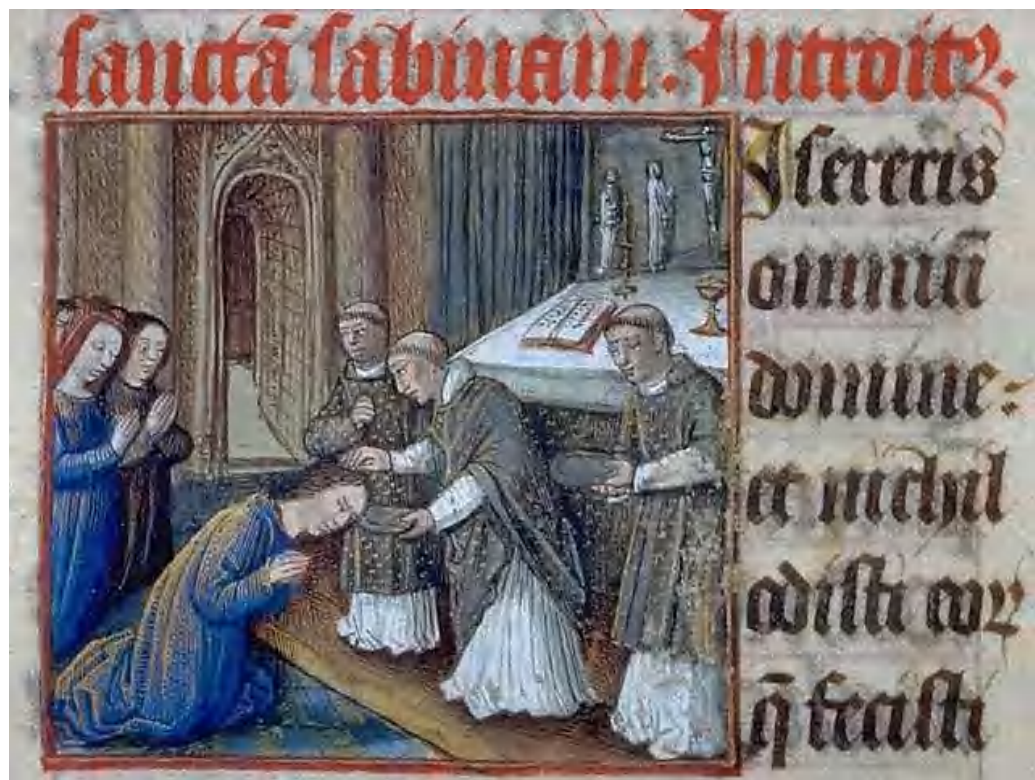 sanctā sabinam. Introitꝫ.
Isereris
omniū
domine:
et nichil
odisti eoꝝ
q̄ fecisti